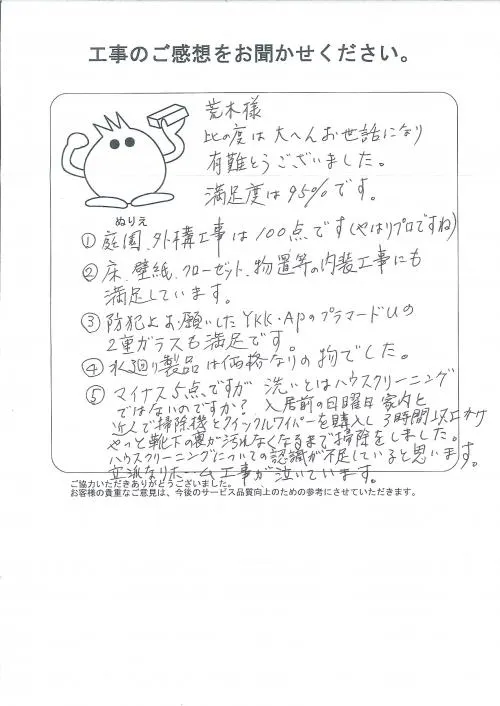 工事のご感想をお聞かせください。
荒木様
此の度は大へんお世話になり
有難とうございました。
満足度は95%です。
ぬりえ
① 庭園、外構工事は100点です(やはりプロですね)
② 床、壁紙、クローゼット、物置等の内装工事にも
満足しています。
③ 防犯上お願いしたYKK・APのプラマードUの
2重ガラスも満足です。
④ 水廻り製品は価格なりの物でした。
⑤ マイナス5点、ですが 洗いとはハウスクリーニング
ではないのですか? 入居前の日曜日家内と
近くで掃除機とクイックルワイパーを購入し3時間以上かけ
やっと靴下の裏が汚れなくなるまで掃除をしました。
ハウスクリーニングについての認識が不足していると思います。
立派なリホーム工事が泣いています。
ご協力いただきありがとうございました。
お客様の貴重なご意見は、今後のサービス品質向上のための参考にさせていただきます。